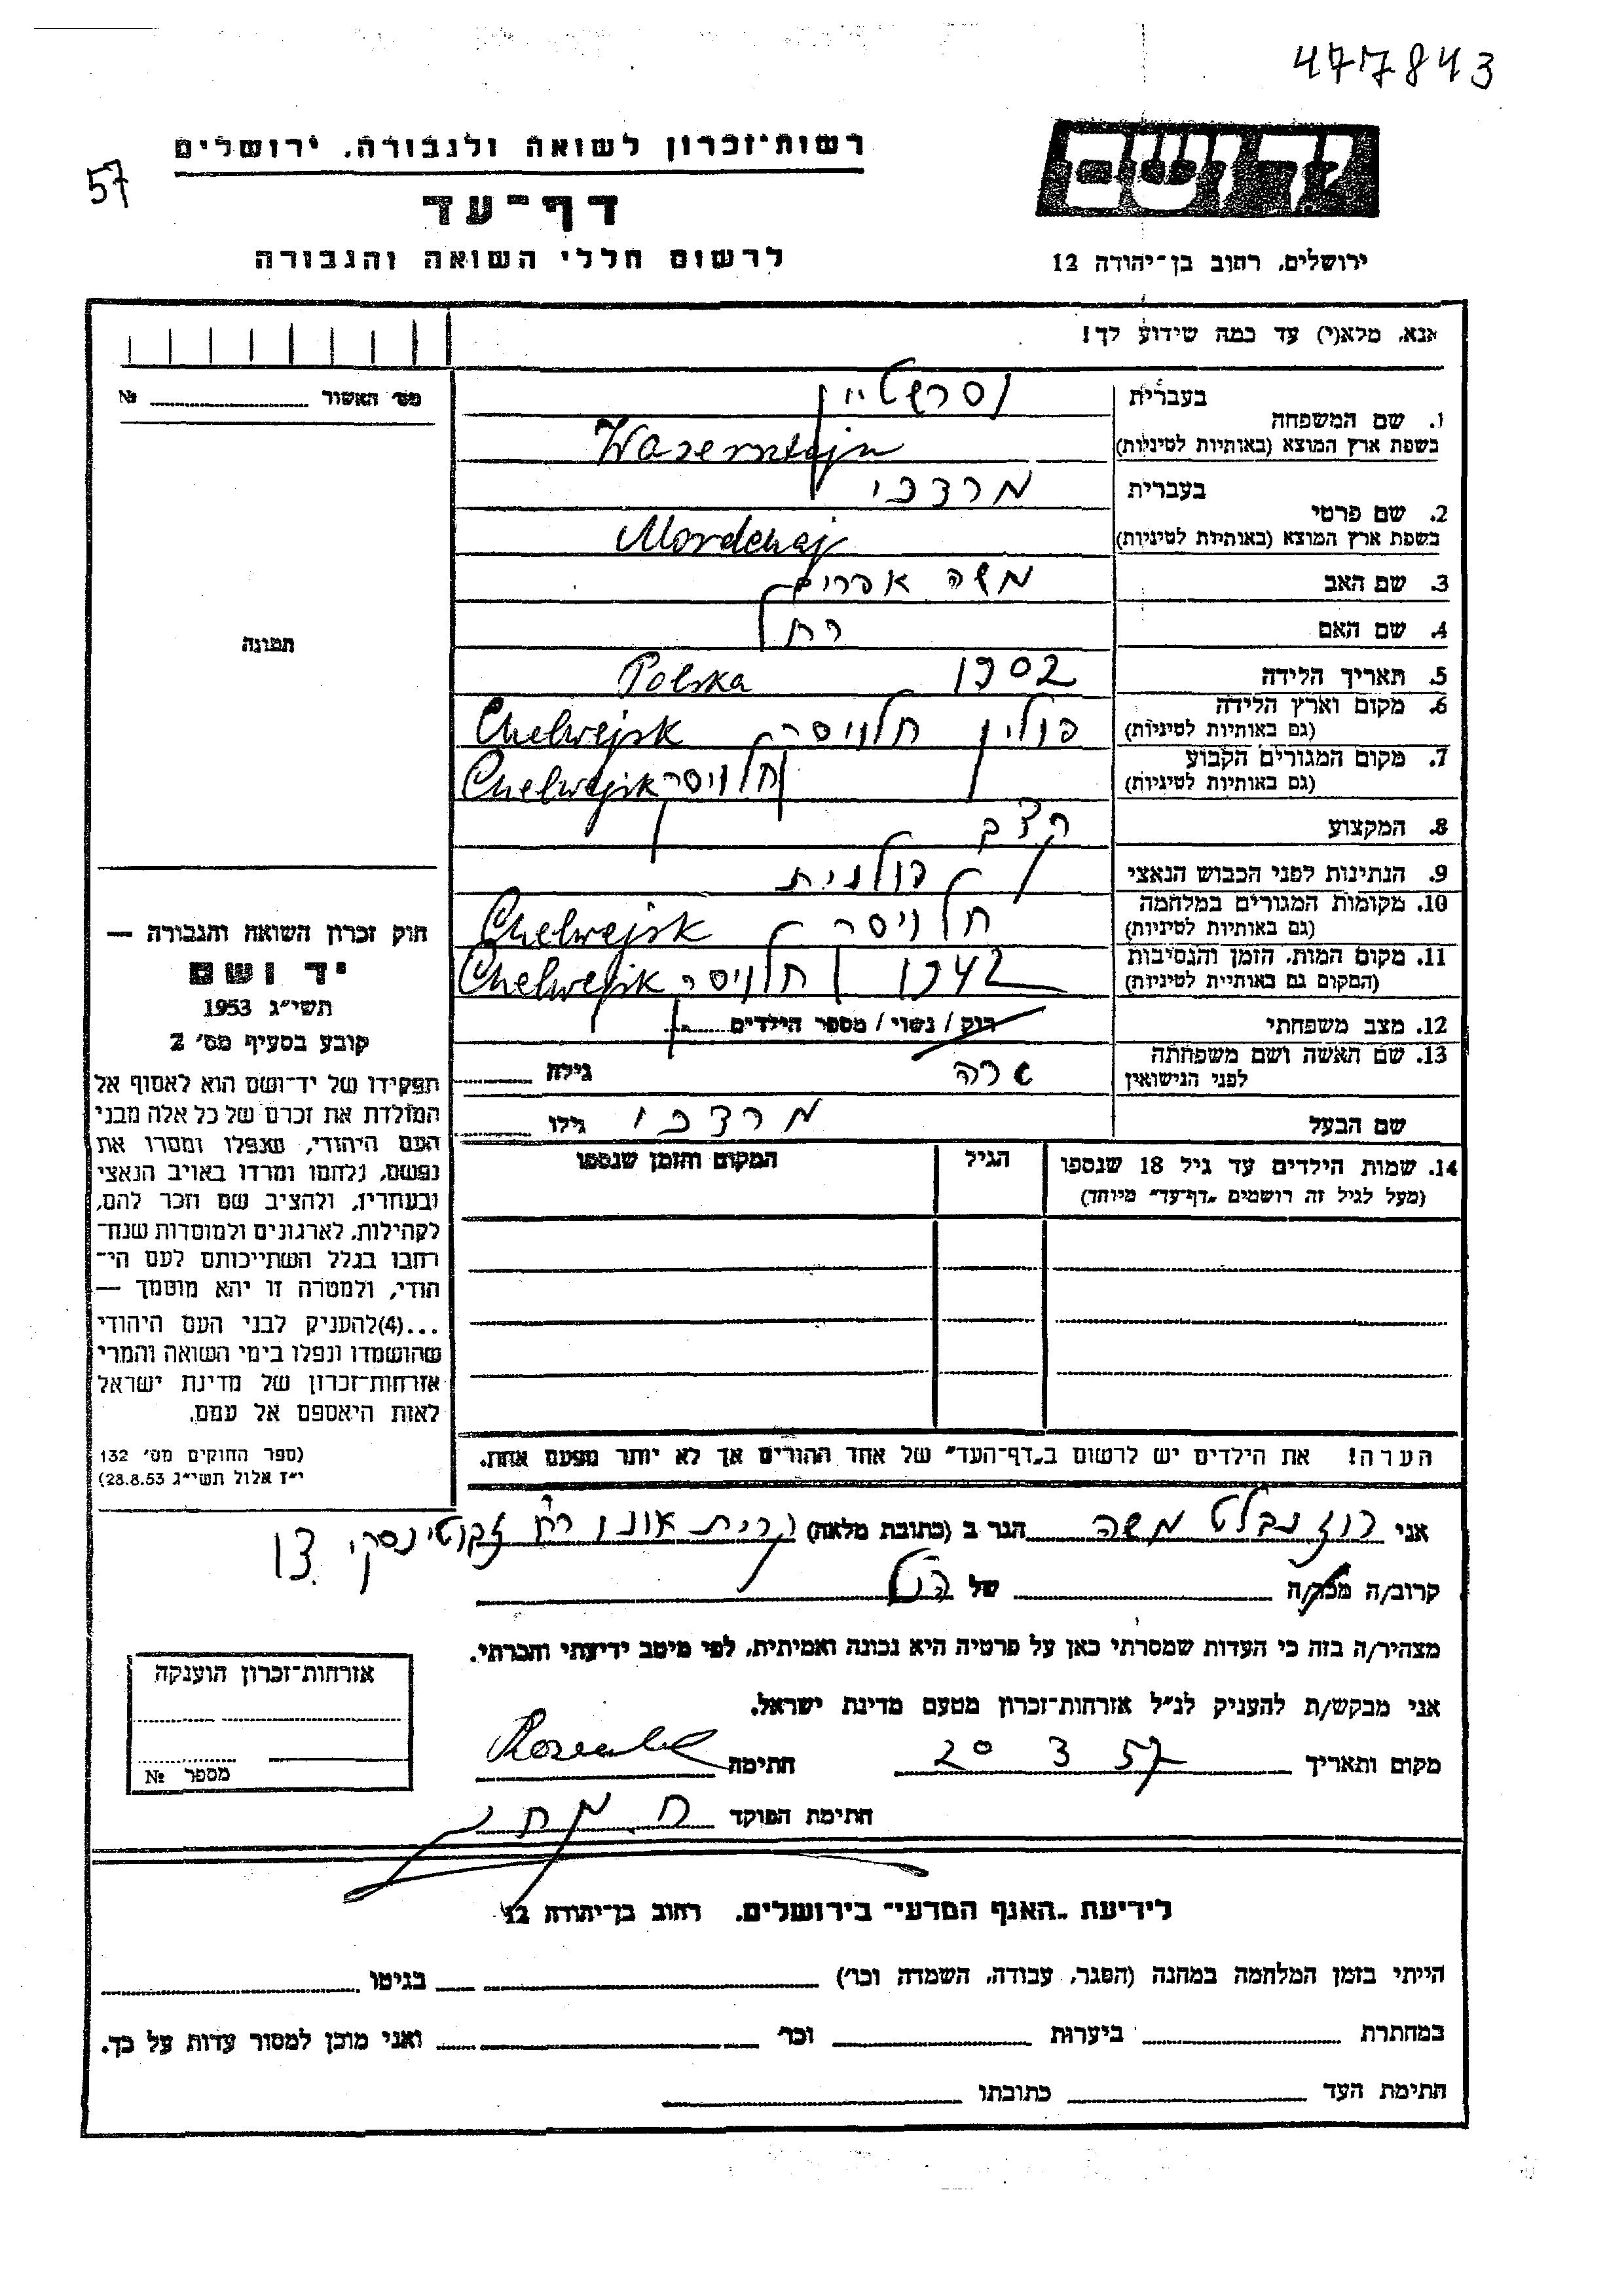 477843
57
רשות־זכרון לשואה ולגבורה, ירושלים
דף־עד
לרשום חללי השואה והגבורה
יד ושם
ירושלים, רחוב בן־יהודה 12
אנא, מלא(י) עד כמה שידוע לך!
מס׳ האשור № 
תמונה
1. שם המשפחה
בעברית וסרשטיין
בשפת ארץ המוצא (באותיות לטיניות) Wasersztejn
2. שם פרטי
בעברית מרדכי
בשפת ארץ המוצא (באותיות לטיניות) Mordchaj
3. שם האב משה אפרים
4. שם האם רחל
5. תאריך הלידה 1902 Polska
6. מקום וארץ הלידה פולין חלויסק Chelwejsk
(גם באותיות לטיניות)
7. מקום המגורים הקבוע חלויסק Chelwejsk
(גם באותיות לטיניות)
8. המקצוע קצב
9. הנתינות לפני הכבוש הנאצי פולנית
10. מקומות המגורים במלחמה חלויסק Chelwejsk
(גם באותיות לטיניות)
11. מקום המות, הזמן והנסיבות 1942 חלויסק Chelwejsk
(המקום גם באותיות לטיניות)
12. מצב משפחתי רוק / נשוי / מספר הילדים
13. שם האשה ושם משפחתה שרה גילה
לפני הנישואין
שם הבעל מרדכי גילו
14. שמות הילדים עד גיל 18 שנספו הגיל המקום והזמן שנספו
(מעל לגיל זה רושמים „דף־עד״ מיוחד)
הערה! את הילדים יש לרשום ב„דף־העד״ של אחד ההורים אך לא יותר מפעם אחת.
חוק זכרון השואה והגבורה —
יד ושם
תשי״ג 1953
קובע בסעיף מס׳ 2
תפקידו של יד־ושם הוא לאסוף אל
המולדת את זכרם של כל אלה מבני
העם היהודי, שנפלו ומסרו את
נפשם, נלחמו ומרדו באויב הנאצי
ובעוזריו, ולהציב שם וזכר להם,
לקהילות, לארגונים ולמוסדות שנח־
רבו בגלל השתייכותם לעם הי־
הודי, ולמטרה זו יהא מוסמך —
...(4)להעניק לבני העם היהודי
שהושמדו ונפלו בימי השואה והמרי
אזרחות־זכרון של מדינת ישראל
לאות היאספם אל עמם.
(ספר החוקים מס׳ 132
י״ז אלול תשי״ג 28.8.53)
אני רוזנבלט משה הגר ב (כתובת מלאה) קרית אונו רח' זבוטינסקי
קרוב/ה מכר/ה של
מצהיר/ה בזה כי העדות שמסרתי כאן על פרטיה היא נכונה ואמיתית, לפי מיטב ידיעתי והכרתי.
אני מבקש/ת להעניק לנ״ל אזרחות־זכרון מטעם מדינת ישראל.
מקום ותאריך 20 3 57 חתימה
חתימת הפוקד
אזרחות־זכרון הוענקה
מספר №
לידיעת „האגף המדעי״ בירושלים, רחוב בן־יהודה 12
הייתי בזמן המלחמה במחנה (הסגר, עבודה, השמדה וכו׳) בגיטו
במחתרת ביערות וכו׳ ואני מוכן למסור עדות על כך.
חתימת העד כתובתו